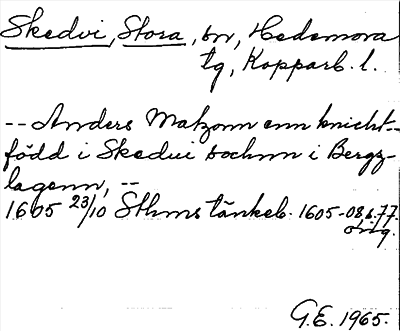 Skedvi, Stora, sn, Hedemora
tg, Kopparb. l.
-- Anders Matzonn enn knicht --
född i Skedvi sochnn i Bergz-
lagenn, --
1605 23/10 Sthms tänkeb. 1605-08 s. 77.
orig.
G.E. 1965.